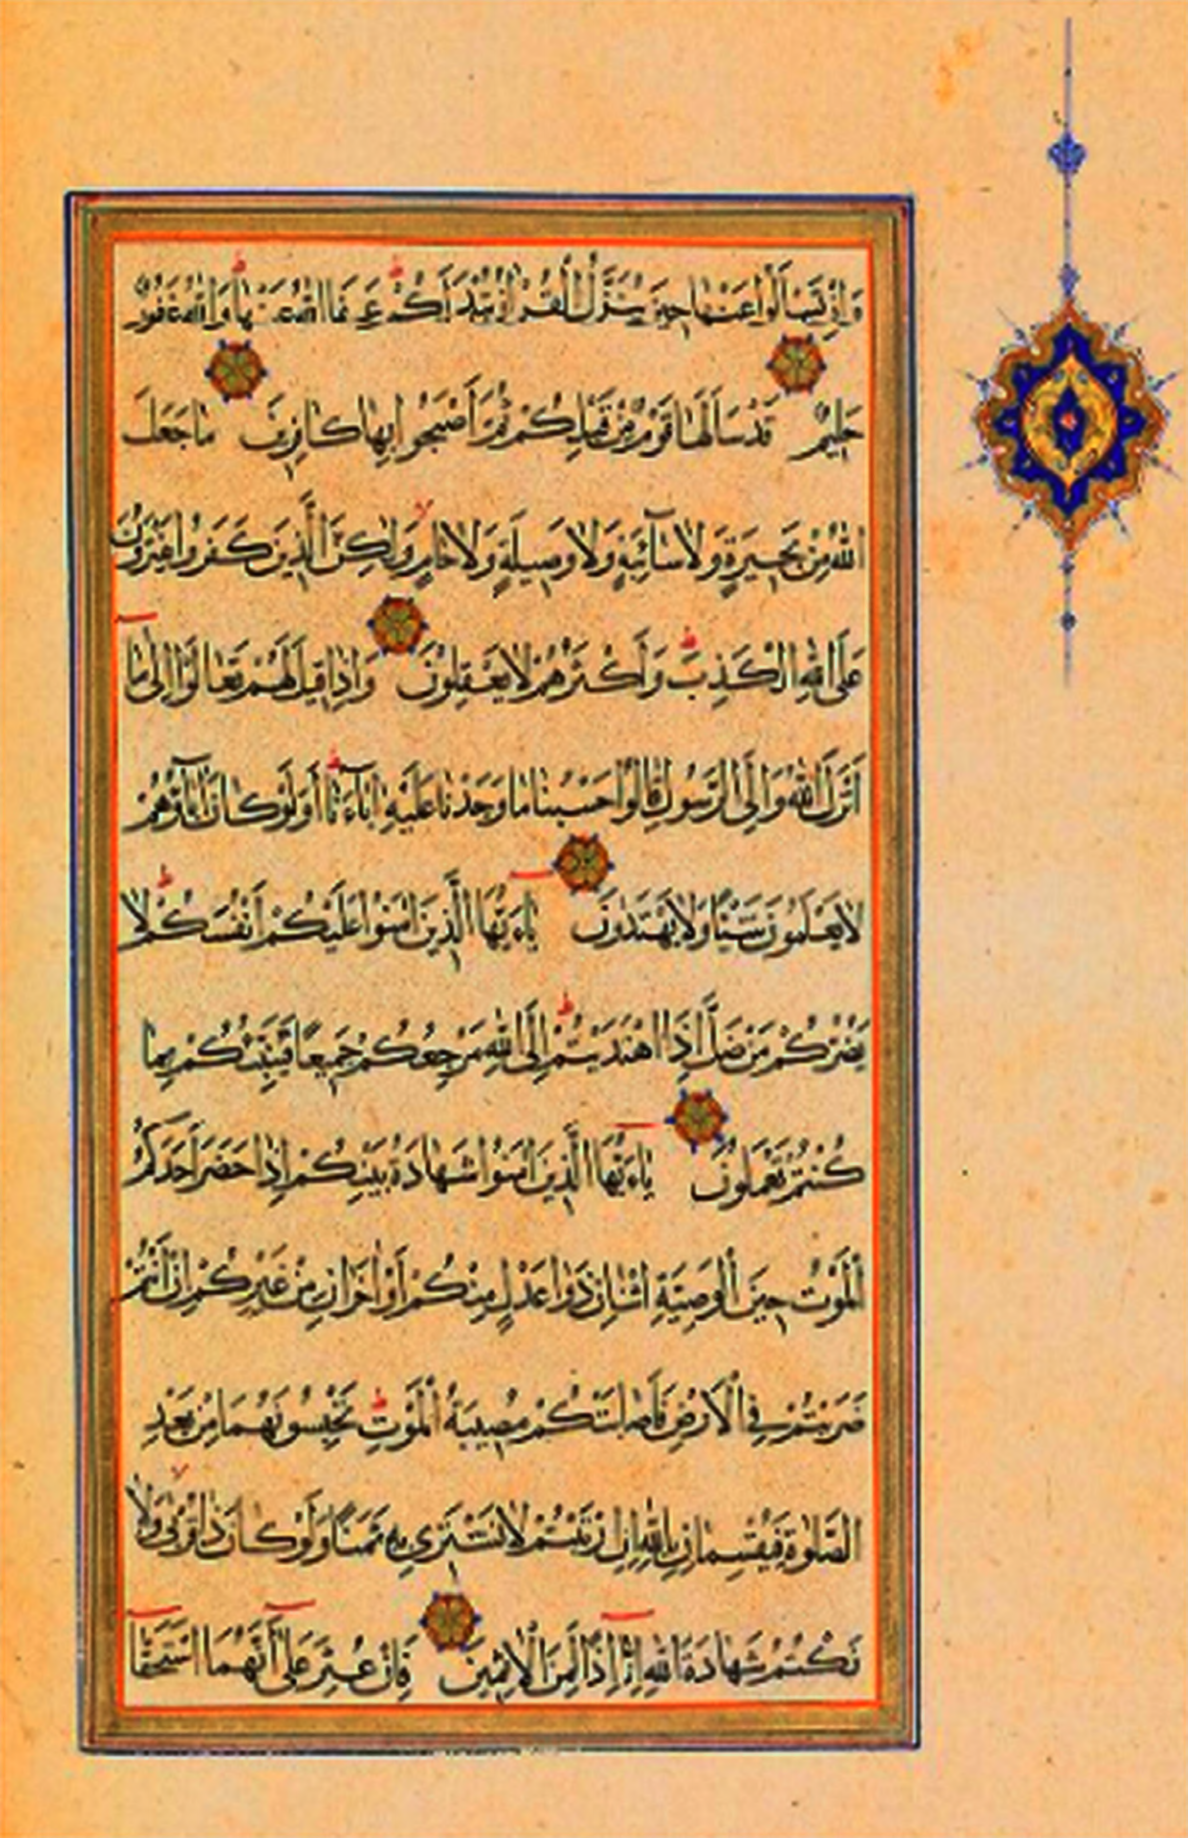 وَاِنْ تَسْـَٔلُوا عَنْهَا حِينَ يُنَزَّلُ الْقُرْاٰنُ تُبْدَ لَكُمْ عَفَا اللّٰهُ عَنْهَا وَاللّٰهُ غَفُورٌ
حَلِيمٌ قَدْ سَاَلَهَا قَوْمٌ مِنْ قَبْلِكُمْ ثُمَّ اَصْبَحُوا بِهَا كَافِرِينَ مَا جَعَلَ
اللّٰهُ مِنْ بَحِيرَةٍ وَلَا سَٓائِبَةٍ وَلَا وَصِيلَةٍ وَلَا حَامٍ وَلٰكِنَّ الَّذِينَ كَفَرُوا يَفْتَرُونَ
عَلَى اللّٰهِ الْكَذِبَ وَاَكْثَرُهُمْ لَا يَعْقِلُونَ وَاِذَا قِيلَ لَهُمْ تَعَالَوْا اِلٰى مَا
اَنْزَلَ اللّٰهُ وَاِلَى الرَّسُولِ قَالُوا حَسْبُنَا مَا وَجَدْنَا عَلَيْهِ اٰبَٓاءَنَا اَوَلَوْ كَانَ اٰبَٓاؤُهُمْ
لَا يَعْلَمُونَ شَيْئًا وَلَا يَهْتَدُونَ يَٓا اَيُّهَا الَّذِينَ اٰمَنُوا عَلَيْكُمْ اَنْفُسَكُمْ لَا
يَضُرُّكُمْ مَنْ ضَلَّ اِذَا اهْتَدَيْتُمْ اِلَى اللّٰهِ مَرْجِعُكُمْ جَمِيعًا فَيُنَبِّئُكُمْ بِمَا
كُنْتُمْ تَعْمَلُونَ يَٓا اَيُّهَا الَّذِينَ اٰمَنُوا شَهَادَةُ بَيْنِكُمْ اِذَا حَضَرَ اَحَدَكُمُ
الْمَوْتُ حِينَ الْوَصِيَّةِ اثْنَانِ ذَوَا عَدْلٍ مِنْكُمْ اَوْ اٰخَرَانِ مِنْ غَيْرِكُمْ اِنْ اَنْتُمْ
ضَرَبْتُمْ فِي الْاَرْضِ فَاَصَابَتْكُمْ مُصِيبَةُ الْمَوْتِ تَحْبِسُونَهُمَا مِنْ بَعْدِ
الصَّلٰوةِ فَيُقْسِمَانِ بِاللّٰهِ اِنِ ارْتَبْتُمْ لَا نَشْتَرِي بِهِ ثَمَنًا وَلَوْ كَانَ ذَا قُرْبٰى وَلَا
نَكْتُمُ شَهَادَةَ اللّٰهِ اِنَّٓا اِذًا لَمِنَ الْاٰثِمِينَ فَاِنْ عُثِرَ عَلٰٓى اَنَّهُمَا اسْتَحَقَّٓا